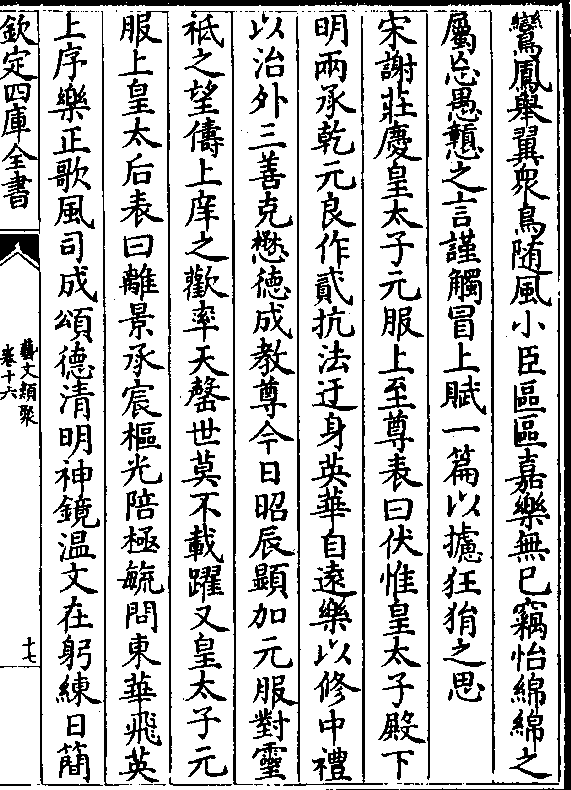 鸞鳳舉翼衆鳥随風小臣區區嘉樂無已竊怡綿綿之
屬忘愚戇之言謹觸冒上賦一篇以攄狂狷之思
宋謝莊慶皇太子元服上至尊表曰伏惟皇太子殿下
明兩承乾元良作貳抗法迂身英華自遠樂以修中禮
以治外三善克懋德成教尊今日昭辰顯加元服對靈
祗之望儔上庠之歡率天罄世莫不載躍又皇太子元
服上皇太后表曰離景承宸樞光陪極毓問東華飛英
上序樂正歌風司成頌德清明神鏡温文在躬練日簡
欽定四庫全書
藝文類聚
卷十六
十七